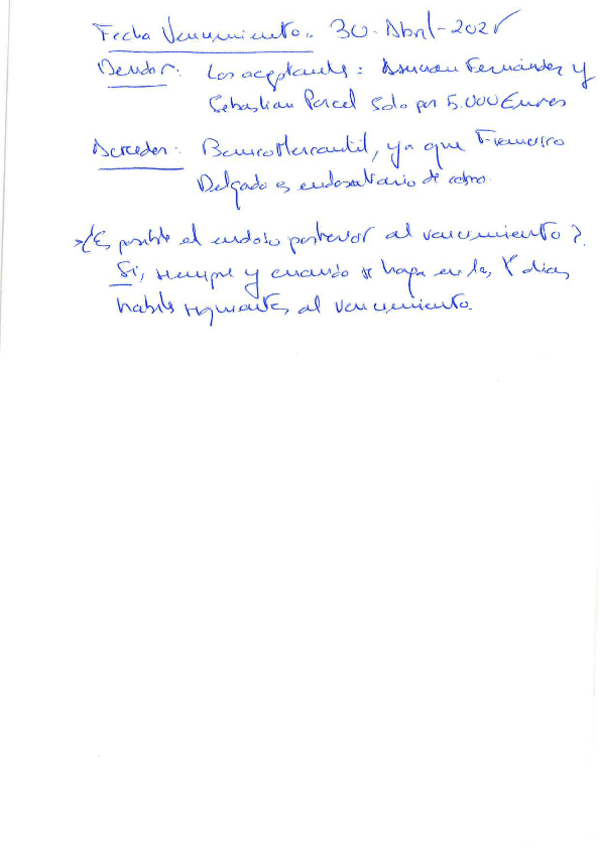 Fecha Vencimiento.. 30-Abril-2025
Deudor: Los aceptantes: Asuncion Fernández y
Sebastian Porcel solo por 5.000 Euros
Acreedor: Banco Mercantil, ya que Francisco
Delgado es endosatario de cobro.
→ ¿Es posible el endoso posterior al vencimiento?
Si, siempre y cuando se haga en los días
habiles siguientes al vencimiento.